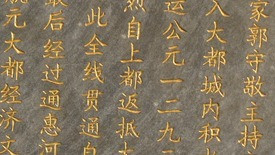 家郭守敬主持
入大都城内积
运公元一二九
烈自上都返抵
此全线贯通
最后经过通惠河
元大都经济文